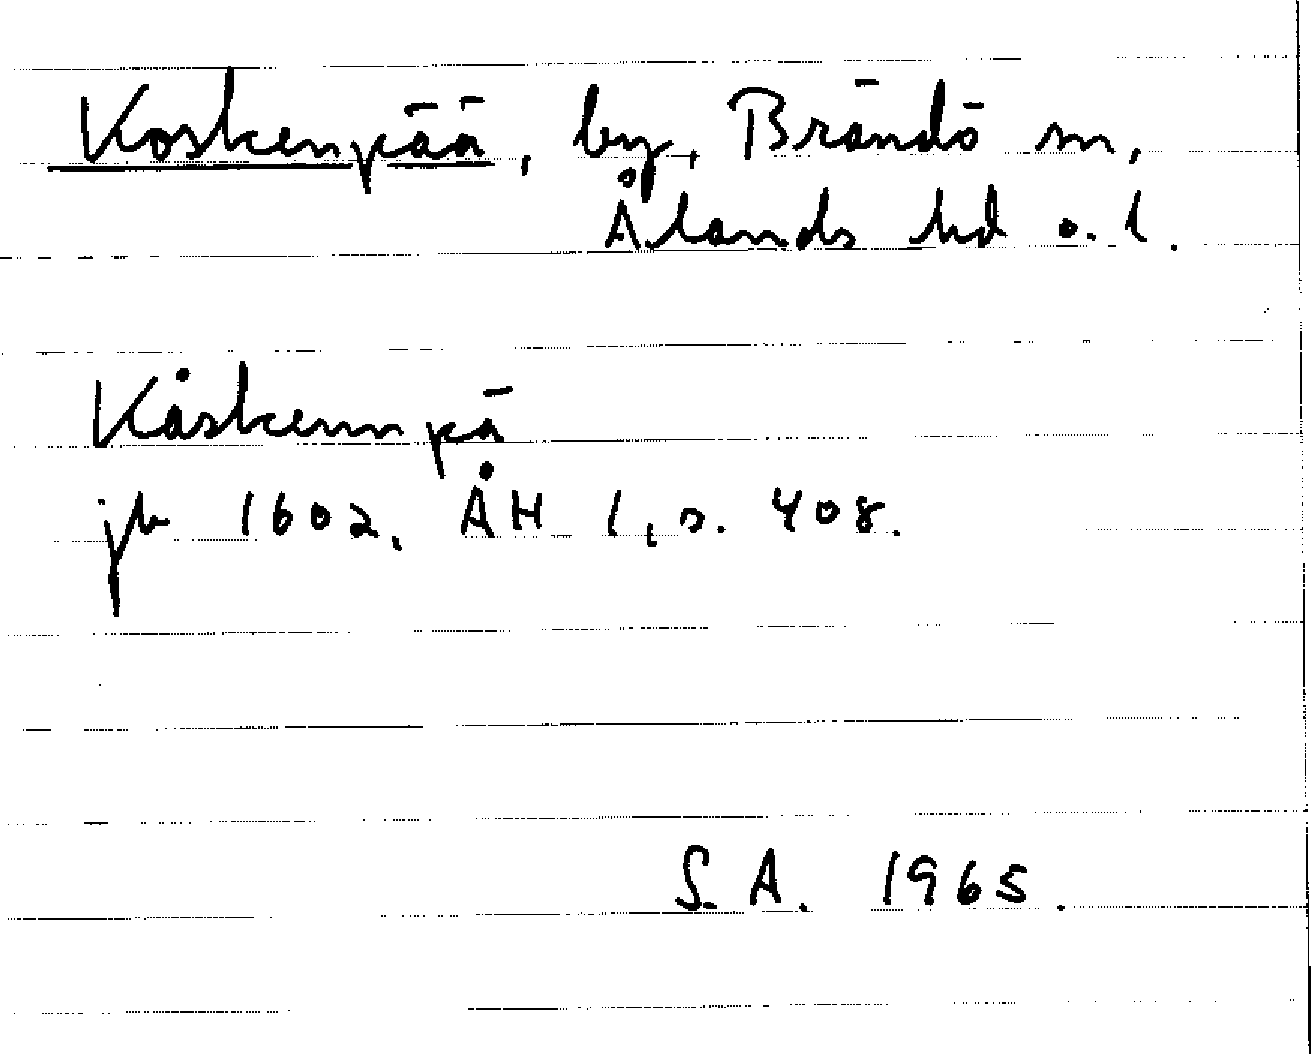 Koskenpää, by, Brändö sn,
Ålands hd o. l.
Kåskennpä
jb 1602, ÅH 1, s. 408.
S. A. 1965.